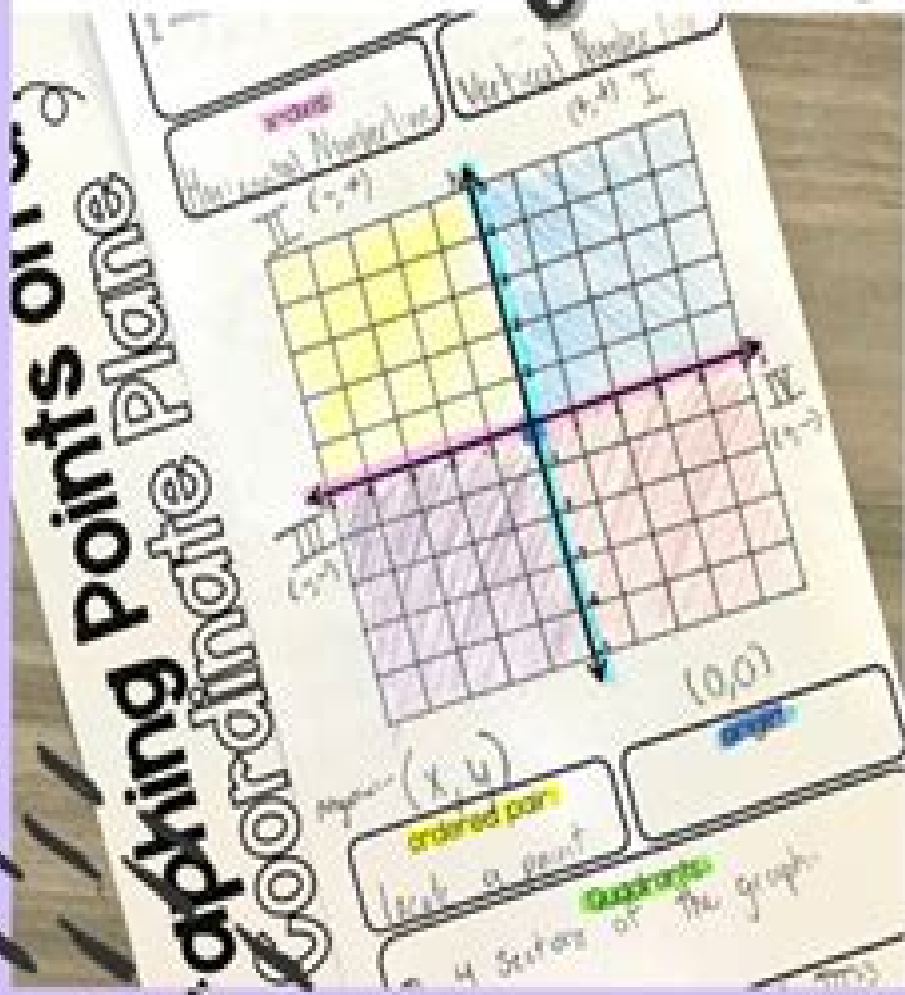 Graphing Points on a
Coordinate Plane
x-axis
Horizontal Numberline
Vertical Number line
(+,+) I
II (-,+)
III
(-,-)
IV
(+,-)
(0,0)
origin
(x,y)
ordered pair:
a point
Quadrants:
4 Sections of the graph.